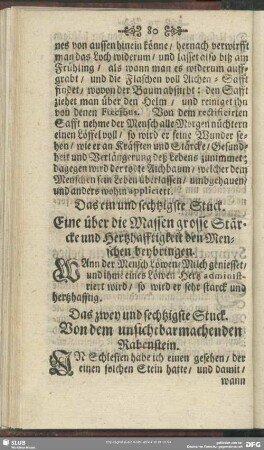 80
nes von aussen hinein könne/ hernach verwirfft
man das Loch widerum/ und lasset also biß am
Frühling/ als wann man es widerum auff-
grabt/ und die Flaschen voll Aichen-Safft
findet/ wovon der Baum abstirbt: den Safft
ziehet man über den Helm/ und reiniget ihn
von denen Fæcibus. Von dem rectificirten
Safft nehme der Mensch alle Morgen nüchtern
einen Löffel voll/ so wird er seine Wunder se-
hen/ wie er an Kräfften und Stärcke/ Gesund-
heit und Verlängerung deß Lebens zunimmet;
dagegen wird der todte Aichbaum/ welcher dem
Menschen sein Leben überlassen/ umbgehauen/
und anders wohin appliciert.
Das ein und sechtzigste Stück.
Eine über die Massen grosse Stär-
cke und Hertzhafftigkeit den Men-
schen beybringen.
WAnn der Mensch Löwen-Milch geniesset/
und ihme eines Löwen Hertz administ-
riert wird/ so wird er sehr starck und
hertzhafftig.
Das zwey und sechtzigste Stuck.
Von dem unsichtbarmachenden
Rabenstein.
IN Schlesien habe ich einen gesehen/ der
einen solchen Stein hatte/ und damit/
wann
SLUB